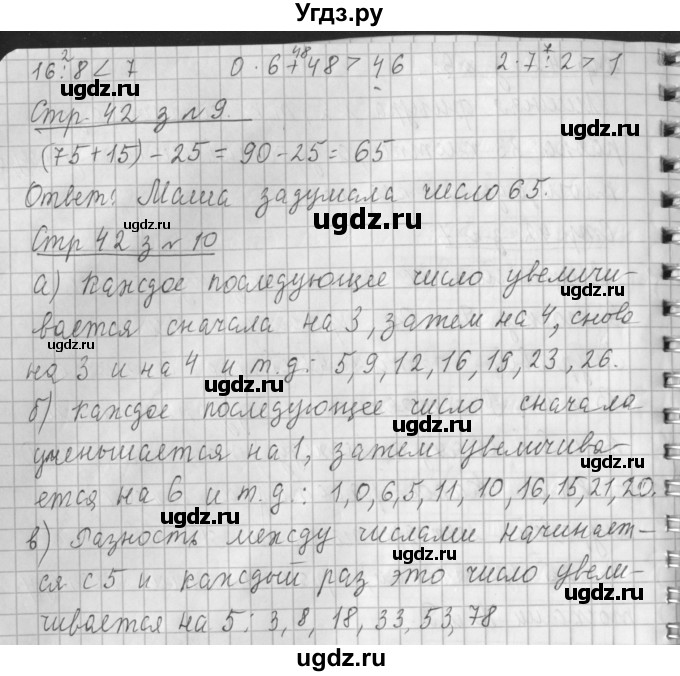 Угдз.ру
16:8<7 0·6+48>46 2·7:2>1
2 48 7
ugdz.ru ugdz.ru
Стр. 42 з №9.
ugdz.ru
(75+15)-25=90-25=65
Ответ: Маша задумала число 65.
ugdz.ru ugdz.ru
Стр 42 з №10
а) каждое последующее число увеличи-
вается сначала на 3, затем на 4, снова
ugdz.ru ugdz.ru
на 3 и на 4 и т.д.: 5,9,12,16,19,23,26.
ugdz.ru
б) каждое последующее число сначала
ugdz.ru
уменьшается на 1, затем увеличива-
ugdz.ru
ется на 6 и т.д.: 1,0,6,5,11,10,16,15,21,20.
ugdz.ru
в) Разность между числами начинает-
ugdz.ru
ся с 5 и каждый раз это число увели-
ugdz.ru
чивается на 5: 3,8,18,33,53,78
ugdz.ru
ugdz.ru